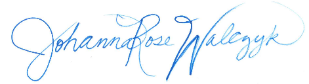 Johanna Rose Walczyk